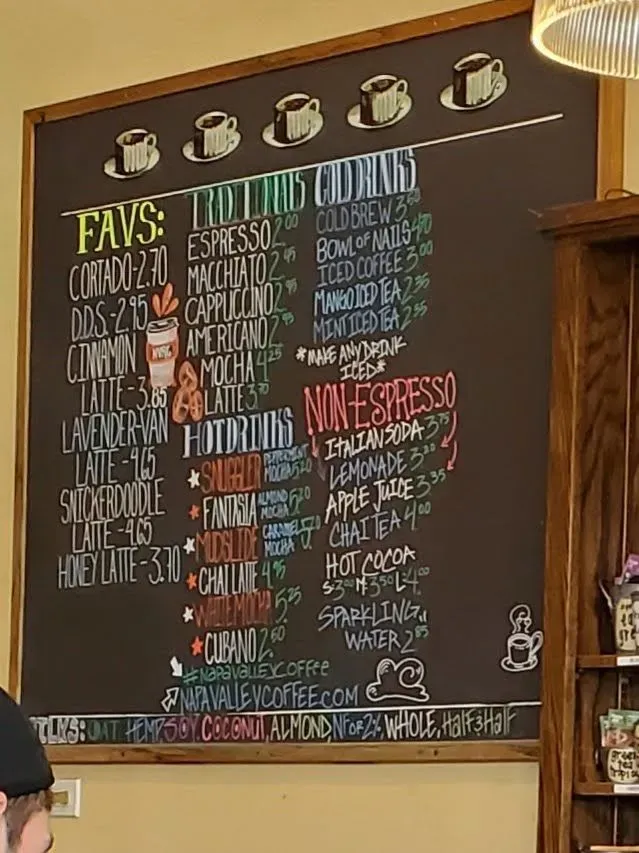 FAVS:
CORTADO-2.70
D.D.S.-2.95
CINNAMON
LATTE-3.85
LAVENDER-VAN
LATTE-4.65
SNICKERDOODLE
LATTE-4.65
HONEY LATTE-3.70
TRADITIONALS
ESPRESSO 2.00
MACCHIATO 2.45
CAPPUCCINO 2.95
AMERICANO
MOCHA 4.25
LATTE 3.70
HOT DRINKS
SNUGGLER PEPPERMINT MOCHA 5.20
FANTASIA ALMOND MOCHA 5.20
MUDSLIDE CARAMEL MOCHA 5.20
CHAI LATTE 4.95
WHITE MOCHA 5.25
CUBANO 2.60
#NAPAVALLEYCOFFEE
NAPAVALLEYCOFFEE.COM
COLD DRINKS
COLD BREW 3.50
BOWL OF NAILS
ICED COFFEE 3.00
MANGO ICED TEA 2.55
MINT ICED TEA 2.55
*MAKE ANY DRINK
ICED*
NON-ESPRESSO
ITALIAN SODA 3.75
LEMONADE
APPLE JUICE 3.35
CHAI TEA 4.00
HOT COCOA
S-3.00 M-3.50 L-4.00
SPARKLING
WATER 2.85
MILKS: OAT, HEMP, SOY, COCONUT, ALMOND, NF OR 2%, WHOLE, HALF & HALF